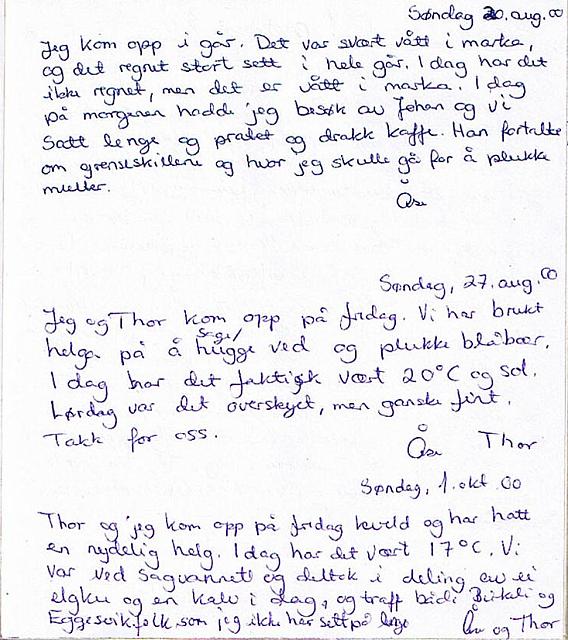 Søndag 20. aug. 00
Jeg kom opp i går. Det var svært vått i marka,
og det regnet stort sett i hele går. I dag har det
ikke regnet, men det er vått i marka. I dag
på morgenen hadde jeg besøk av Johan og vi
satt lenge og pratet og drakk kaffe. Han fortalte
om grenseskillene og hvor jeg skulle gå for å plukke
multer.
Åse
Søndag, 27. aug. 00
Jeg og Thor kom opp på fredag. Vi har brukt
helga på å sage/hugge ved og plukke blåbær.
I dag har det faktisk vært 20°C og sol.
Lørdag var det overskyet, men ganske fint.
Takk for oss.
Åse Thor
Søndag, 1. okt. 00
Thor og jeg kom opp på fredag kveld og har hatt
en nydelig helg. I dag har det vært 17°C. Vi
var ved Sagvannet og deltok i deling av ei
elgku og en kalv i dag, og traff både og
Eggesvikfolk som jeg ikke har sett på lenge
Åse og Thor